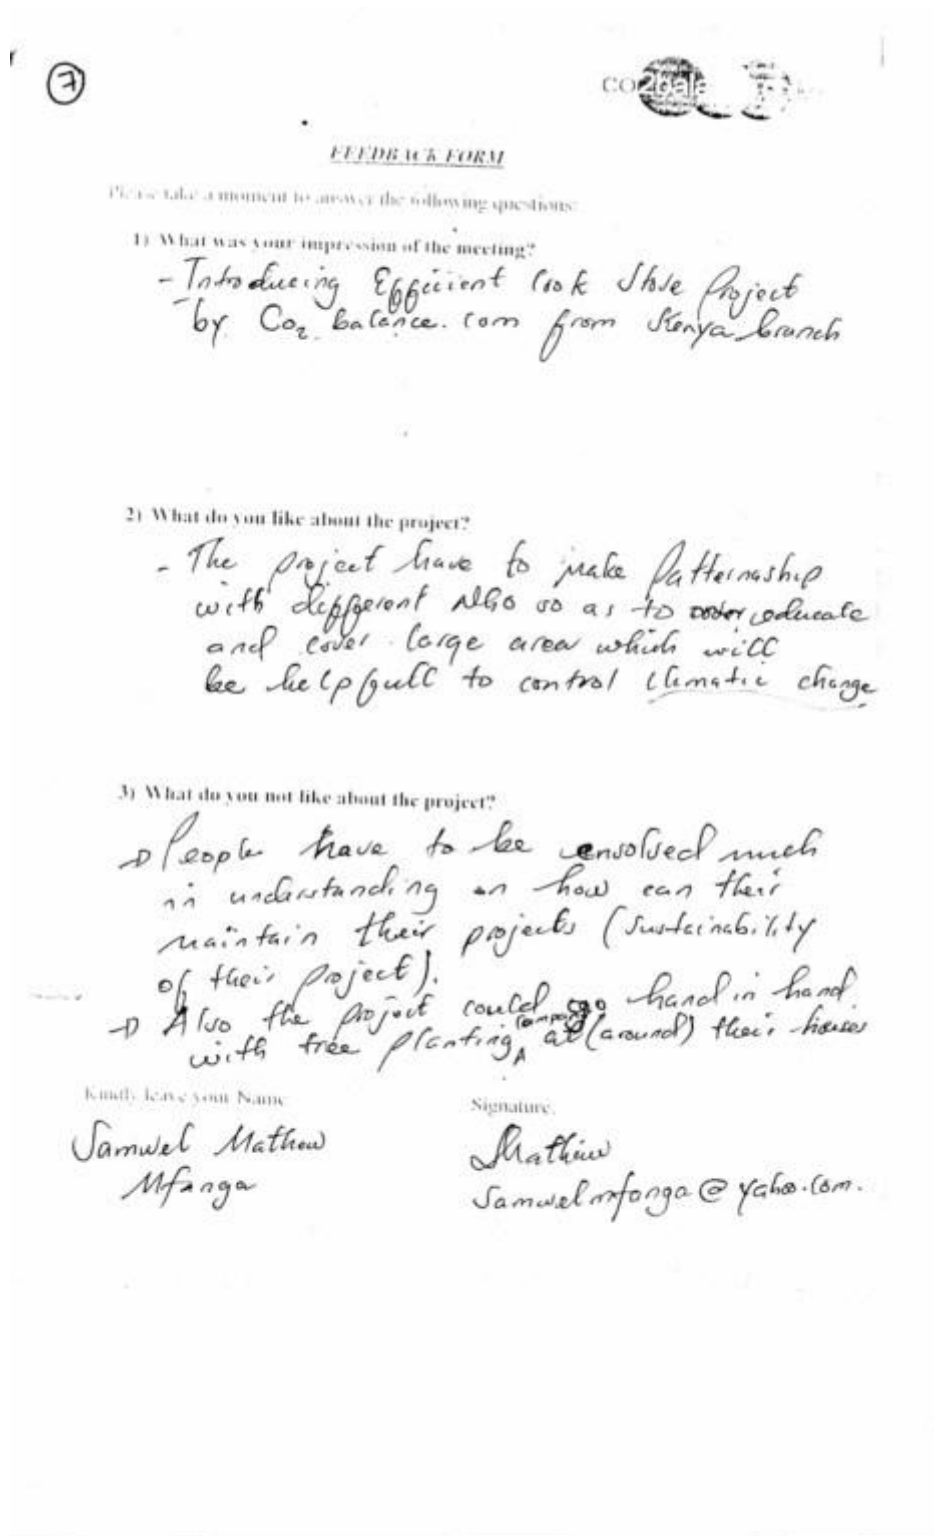 7
co2bala
FEEDBACK FORM
Please take a moment to answer the following questions:
1) What was your impression of the meeting?
- Introducing Efficient Cook Stove Project
by Co2 balance.com from Kenya branch
2) What do you like about the project?
- The project have to make Patternaship
with different NGO so as to educate
and cover large area which will
be helpfull to control Climatic change
3) What do you not like about the project?
People have to be envolved much
in understanding on how can their
maintain their projects (Sustainability
of their project).
Also the project could go hand in hand
with tree planting at (around) their houses
Kindly leave your Name
Signature.
Samwel Mathew
Mfanga
SMathew
Samwelmfanga@yahoo.com.